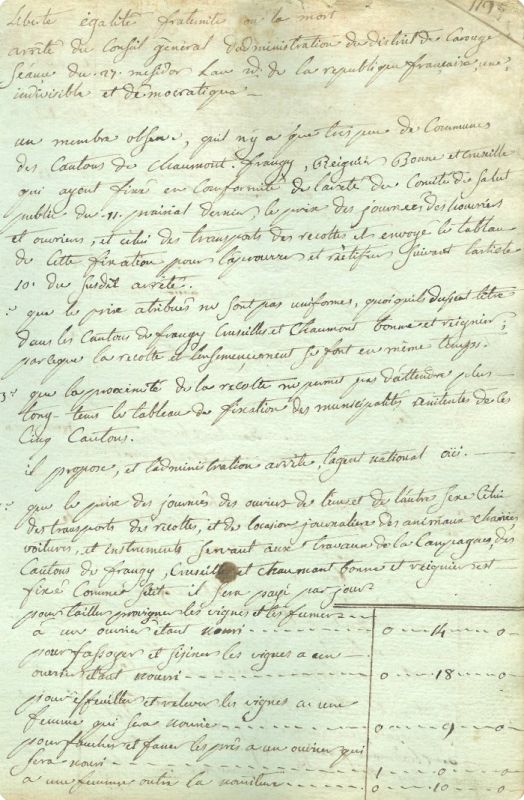 Liberté égalité fraternité ou la mort
arreté du Conseil général d'administration du district de Carouge
Séance du 27. messidor L'an 2d. de la republique française, une
indivisible et démocratique —
un membre observe, qu'il n'y a que tres peu de Communes
des Cantons de Chaumont. frangy, Reignier Bonne et Cruseille
qui ayent fixé en Conformité de l'areté du Comité de Salut
public du .11. prairial dernier, le prix des journées des
et ouvriers, et celui des transports des recoltes et envoye le tableau
de cette fixation pour l'aprouver et rectifier suivant l'article
10. du susdit arreté.
2° que le prix atribués ne sont pas uniformes, quoiqu'ils dussent l'être
dans les Cantons de frangy Cruseilles et Chaumont bonne et reignier,
parceque la recolte et l'ensemencement se font en même temps.
3° que la proximité de la recolte ne permet pas d'attendre plus
long-tems le tableau de fixation des municipalités de ces
Cinq Cantons.
il propose, et l'administration arrête, l'agent national oüi. —
que le prix des journées des ouvriers de l'un et de l'autre Sexe Celui
des transports des recoltes, et de location journaliere des animaux charrues
voitures, et instruments servant aux travaux de la Campagnes, des
Cantons de frangy, Cruseille et chaumont bonne et reignier est
fixé Comme suit. il sera payé par jour
pour tailler provigner les vignes et les fumer
à un ouvrier étant nouri 0 14 0
pour fassoyer et les vignes a un
ouvrier étant nourri 0 18 0
pour effeuiller et relever les vignes a une
femme qui sera nourie 0 9 0
pour faucher et faner les prés a un ouvrier qui
sera nouri 1 0 0
a une femme outre la nouriture 0 10 0